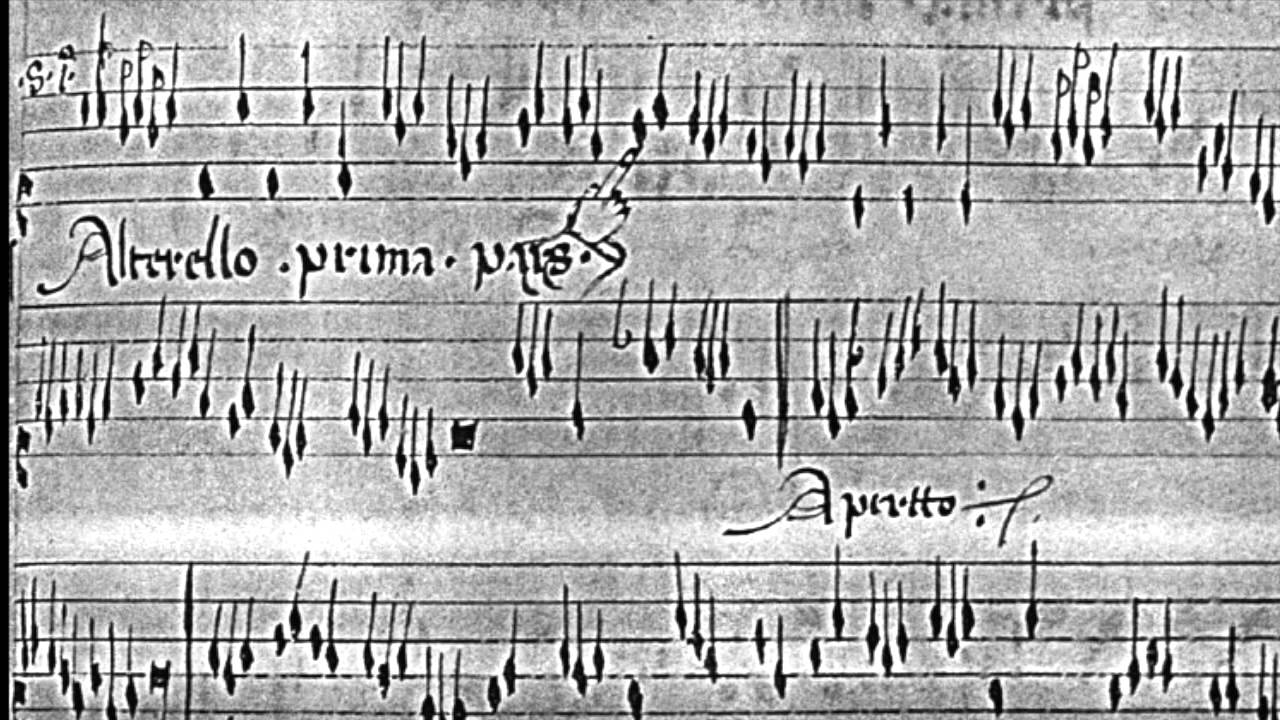 .S.i.
Alterello .prima. pars.
Apertto